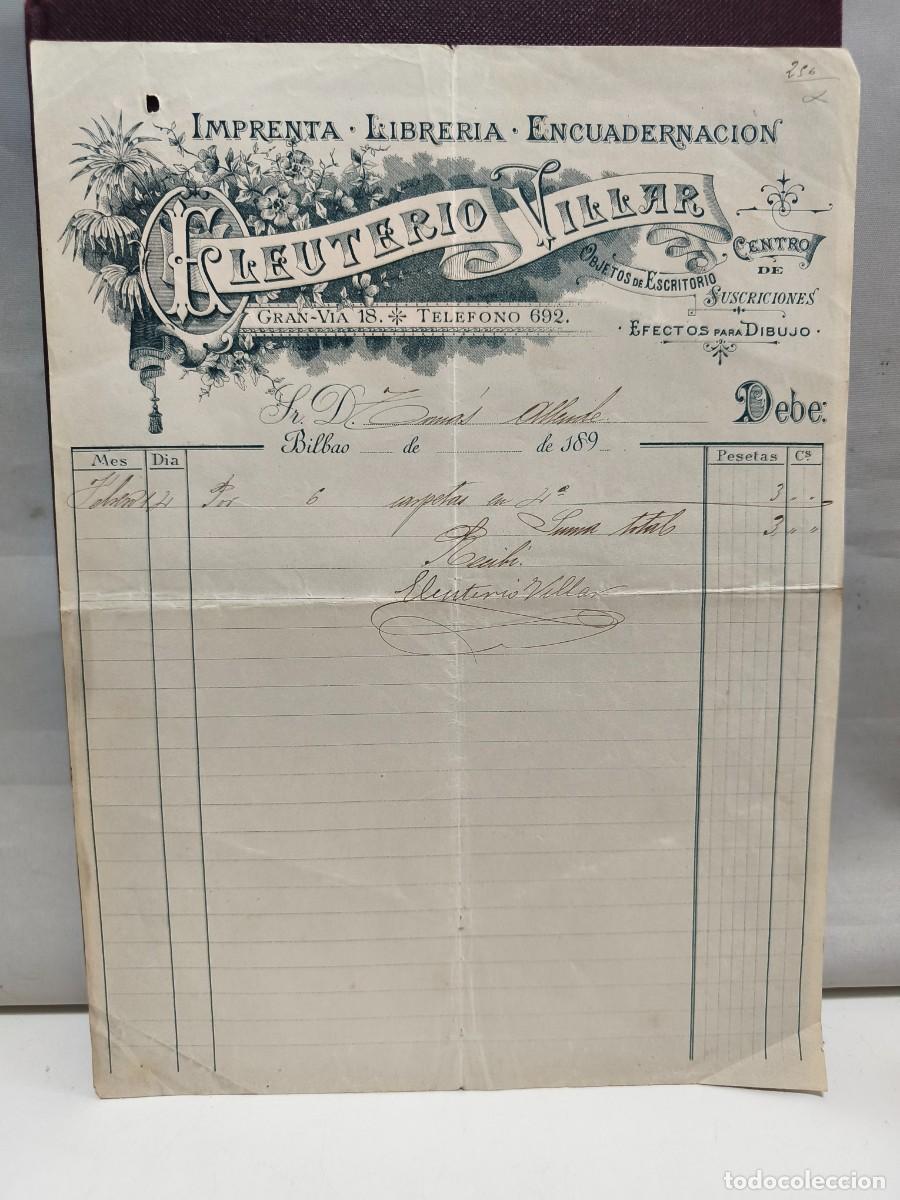 256
IMPRENTA · LIBRERIA · ENCUADERNACION
ELEUTERIO VILLAR
OBJETOS DE ESCRITORIO
CENTRO
DE
SUSCRICIONES
· EFECTOS PARA DIBUJO ·
GRAN-VIA 18. * TELEFONO 692.
Sr. D. Tomás Allende Debe:
Bilbao de de 189
Mes Dia Pesetas Cs.
Febrero 14 Por 6 carpetas en 4º 3 " "
Suma total 3 " "
Recibí
Eleuterio Villar
todocoleccion